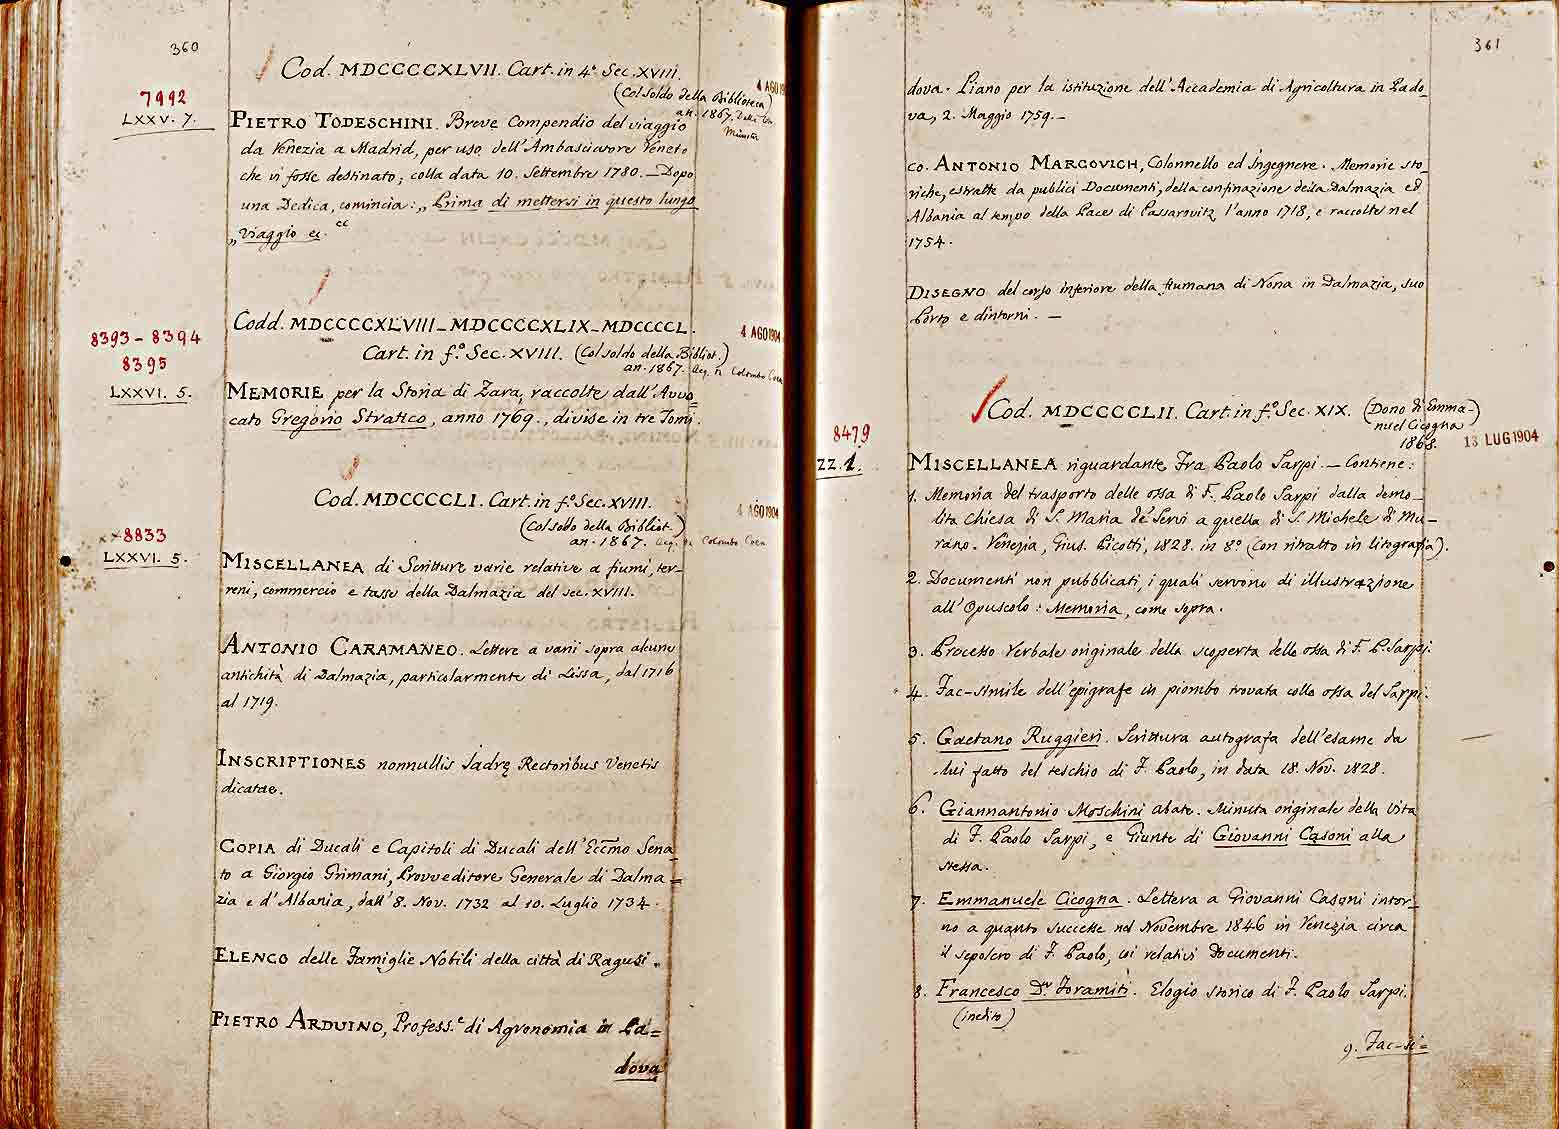 360
Cod. MDCCCCXLVII. Cart. in 4º Sec. XVIII.
(Col soldo della Biblioteca)
an. 1867.
4 AGO
7992
LXXV. 7.
PIETRO TODESCHINI. Breve Compendio del viaggio
da Venezia a Madrid, per uso dell'Ambasciatore Veneto
che vi fosse destinato; colla data 10. Settembre 1780. — Dopo
una Dedica, comincia: „Prima di mettersi in questo lungo
„viaggio ec. "
Codd. MDCCCCXLVIII_MDCCCCXLIX_MDCCCCL.
4 AGO 1904
8393 - 8394
8395
Cart. in f.º Sec. XVIII. (Col soldo della Bibliot.)
an. 1867. Acq. Colombo Coen
LXXVI. 5.
MEMORIE per la Storia di Zara, raccolte dall'Avvo=
cato Gregorio Stratico, anno 1769., divise in tre Tomi.
Cod. MDCCCCLI. Cart. in f.º Sec. XVIII.
4 AGO 1904
(Col soldo della Bibliot.)
an. 1867. Acq. Colombo Coen
8833
LXXVI. 5.
MISCELLANEA di Scritture varie relative a fiumi, ter-
reni, commercio e tasse della Dalmazia del sec. XVIII.
ANTONIO CARAMANEO. Lettere a varii sopra alcune
antichità di Dalmazia, particolarmente di Lissa, dal 1716
al 1719.
INSCRIPTIONES nonnullis Jadrę Rectoribus Venetis
dicatae.
COPIA di Ducali e Capitoli di Ducali dell'Eccmo Sena_
to a Giorgio Grimani, Provveditore Generale di Dalma=
zia e d'Albania, dall'8. Nov. 1732 al 10. Luglio 1734.
ELENCO delle Famiglie Nobili della città di Ragusi.
PIETRO ARDUINO, Profess.e di Agronomia in Pa=
dova
361
dova. Piano per la istituzione dell'Accademia di Agricoltura in Pado_
va, 2. Maggio 1759. —
co. ANTONIO MARCOVICH, Colonnello ed Ingegnere. Memorie sto_
riche, estratte da publici Documenti, della confinazione della Dalmazia ed
Albania al tempo della Pace di Passarovitz l'anno 1718, e raccolte nel
1754.
DISEGNO del corso inferiore della fiumana di Nona in Dalmazia, suo
Porto e dintorni. —
Cod. MDCCCCLII. Cart. in f.º Sec. XIX. (Dono di Emma-
nuel Cicogna)
1868.
13 LUG 1904
8479
ZZ. 1.
MISCELLANEA riguardante Fra Paolo Sarpi. — Contiene:
1. Memoria del trasporto delle ossa di F. Paolo Sarpi dalla demo_
lita Chiesa di S. Maria de' Servi a quella di S. Michele di Mu_
rano. Venezia, Gius. Picotti, 1828. in 8º (con ritratto in litografia).
2. Documenti non pubblicati, i quali servono di illustrazione
all'Opuscolo: Memoria, come sopra.
3. Processo Verbale originale della scoperta delle ossa di F. P. Sarpi.
4. Fac-simile dell'epigrafe in piombo trovata colle ossa del Sarpi.
5. Gaetano Ruggieri. Scrittura autografa dell'esame da
lui fatto del teschio di F. Paolo, in data 18. Nov. 1828.
6. Giannantonio Moschini abate. Minuta originale della Vita
di F. Paolo Sarpi, e Giunte di Giovanni Casoni alla
stessa.
7. Emmanuele Cicogna. Lettera a Giovanni Casoni intor_
no a quanto successe nel Novembre 1846 in Venezia circa
il sepolcro di F. Paolo, coi relativi Documenti.
8. Francesco Dr. Foramiti. Elogio storico di F. Paolo Sarpi.
(inedito)
9. Fac-si=